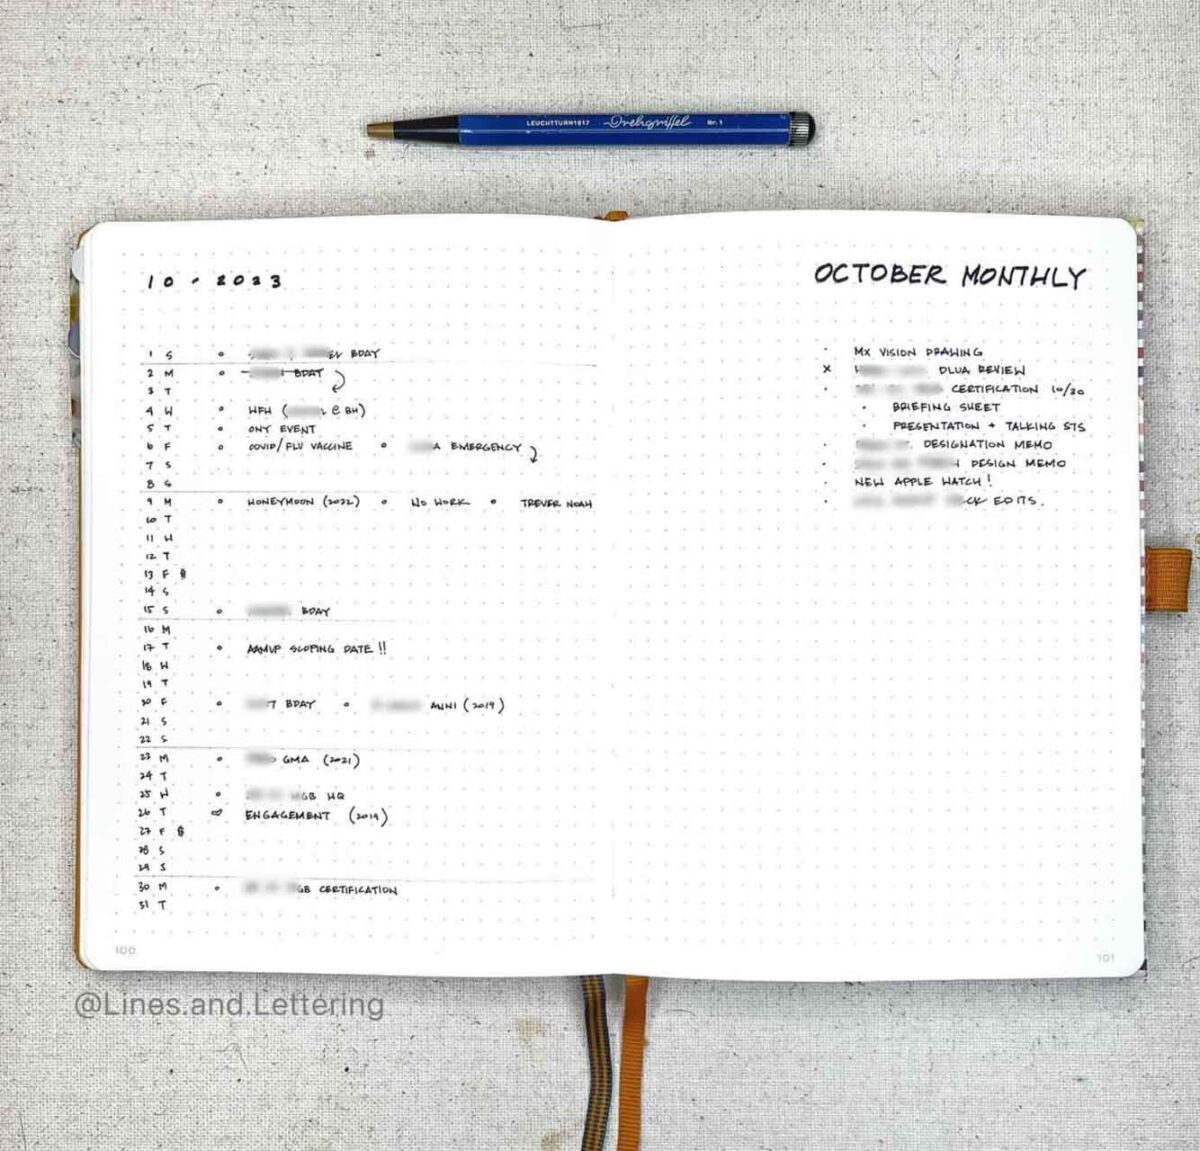 LEUCHTTURM1917 Drehgriffel Nr. 1
10 - 2023
1 S BDAY
2 M BDAY
3 T
4 W WFH ( @ BH)
5 T ONY EVENT
6 F COVID/FLU VACCINE EMERGENCY
7 S
8 S
9 M HONEYMOON (2022) NO WORK TREVER NOAH
10 T
11 W
12 T
13 F $
14 S
15 S BDAY
16 M
17 T SCOPING DATE !!
18 W
19 T
20 F BDAY (2019)
21 S
22 S
23 M GMA (2021)
24 T
25 W HQ
26 T ENGAGEMENT (2019)
27 F $
28 S
29 S
30 M GB CERTIFICATION
31 T
100
OCTOBER MONTHLY
MX VISION DRAWING
x DLUA REVIEW
CERTIFICATION 10/30
BRIEFING SHEET
PRESENTATION + TALKING STS
DESIGNATION MEMO
DESIGN MEMO
NEW APPLE WATCH !
EDITS.
101
@Lines.and.Lettering